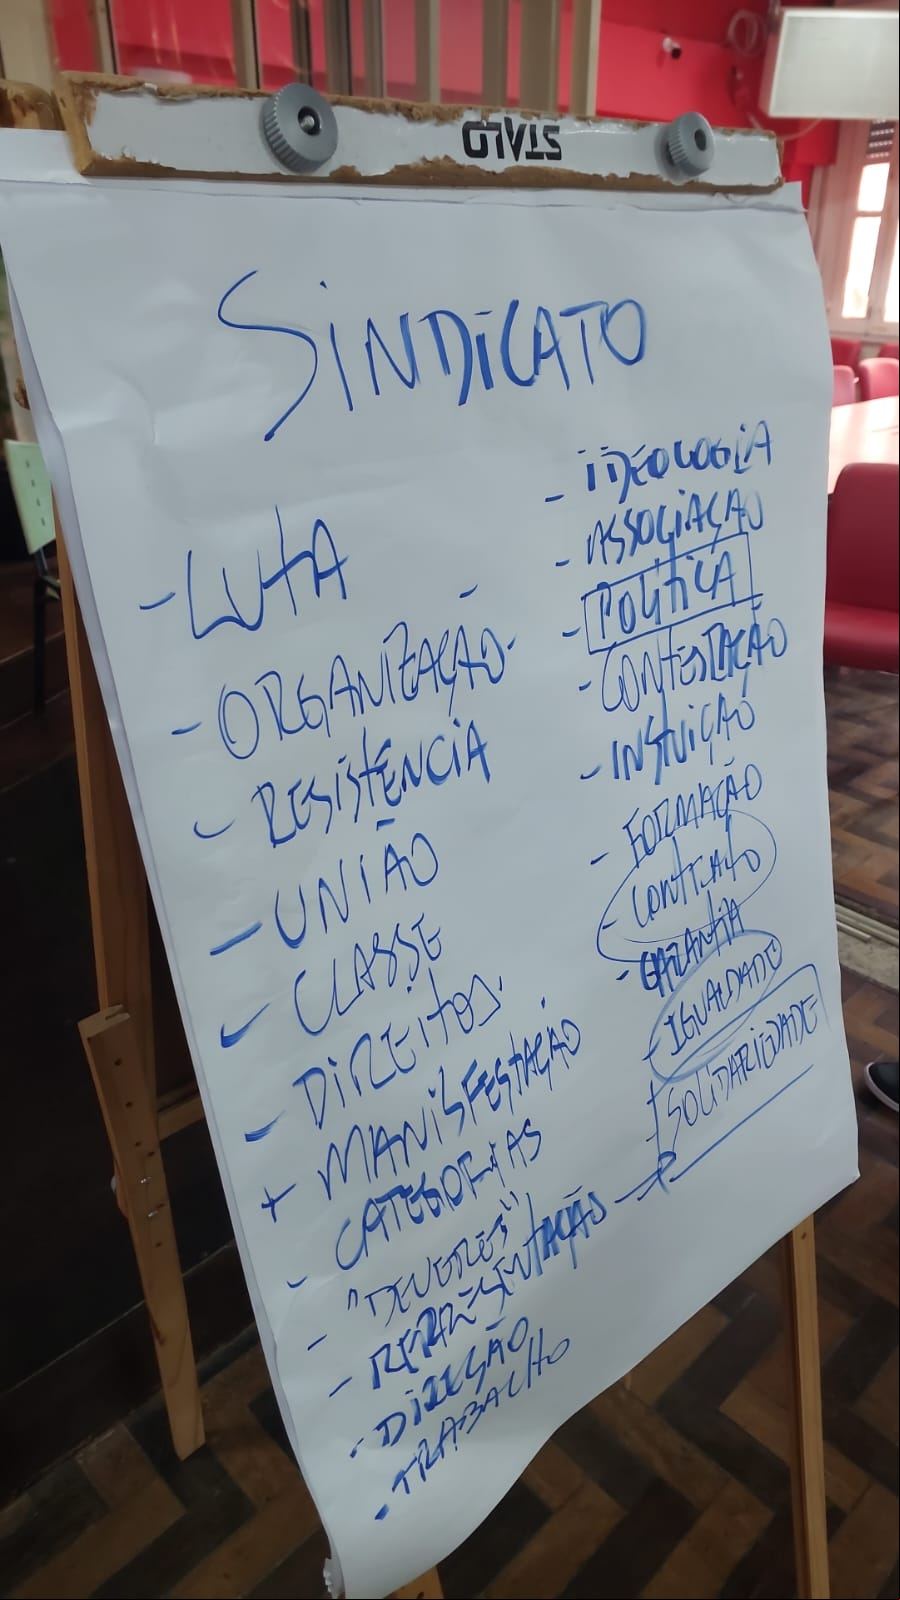 STALO
SINDICATO
- LUTA
- ORGANIZAÇÃO
- RESISTÊNCIA
- UNIÃO
- CLASSE
- DIREITOS
+ MANISFESTAÇÃO
- CATEGORIAS
- "DEVERES"
- REPRESENTAÇÃO
- DIREÇÃO
- TRABALHO
- IDEOLOGIA
- ASSOCIAÇÃO
- POLÍTICA
- CONTESTAÇÃO
- FORMAÇÃO
- CONTRATO
- GARANTIA
- IGUALDADE
- SOLIDARIEDADE